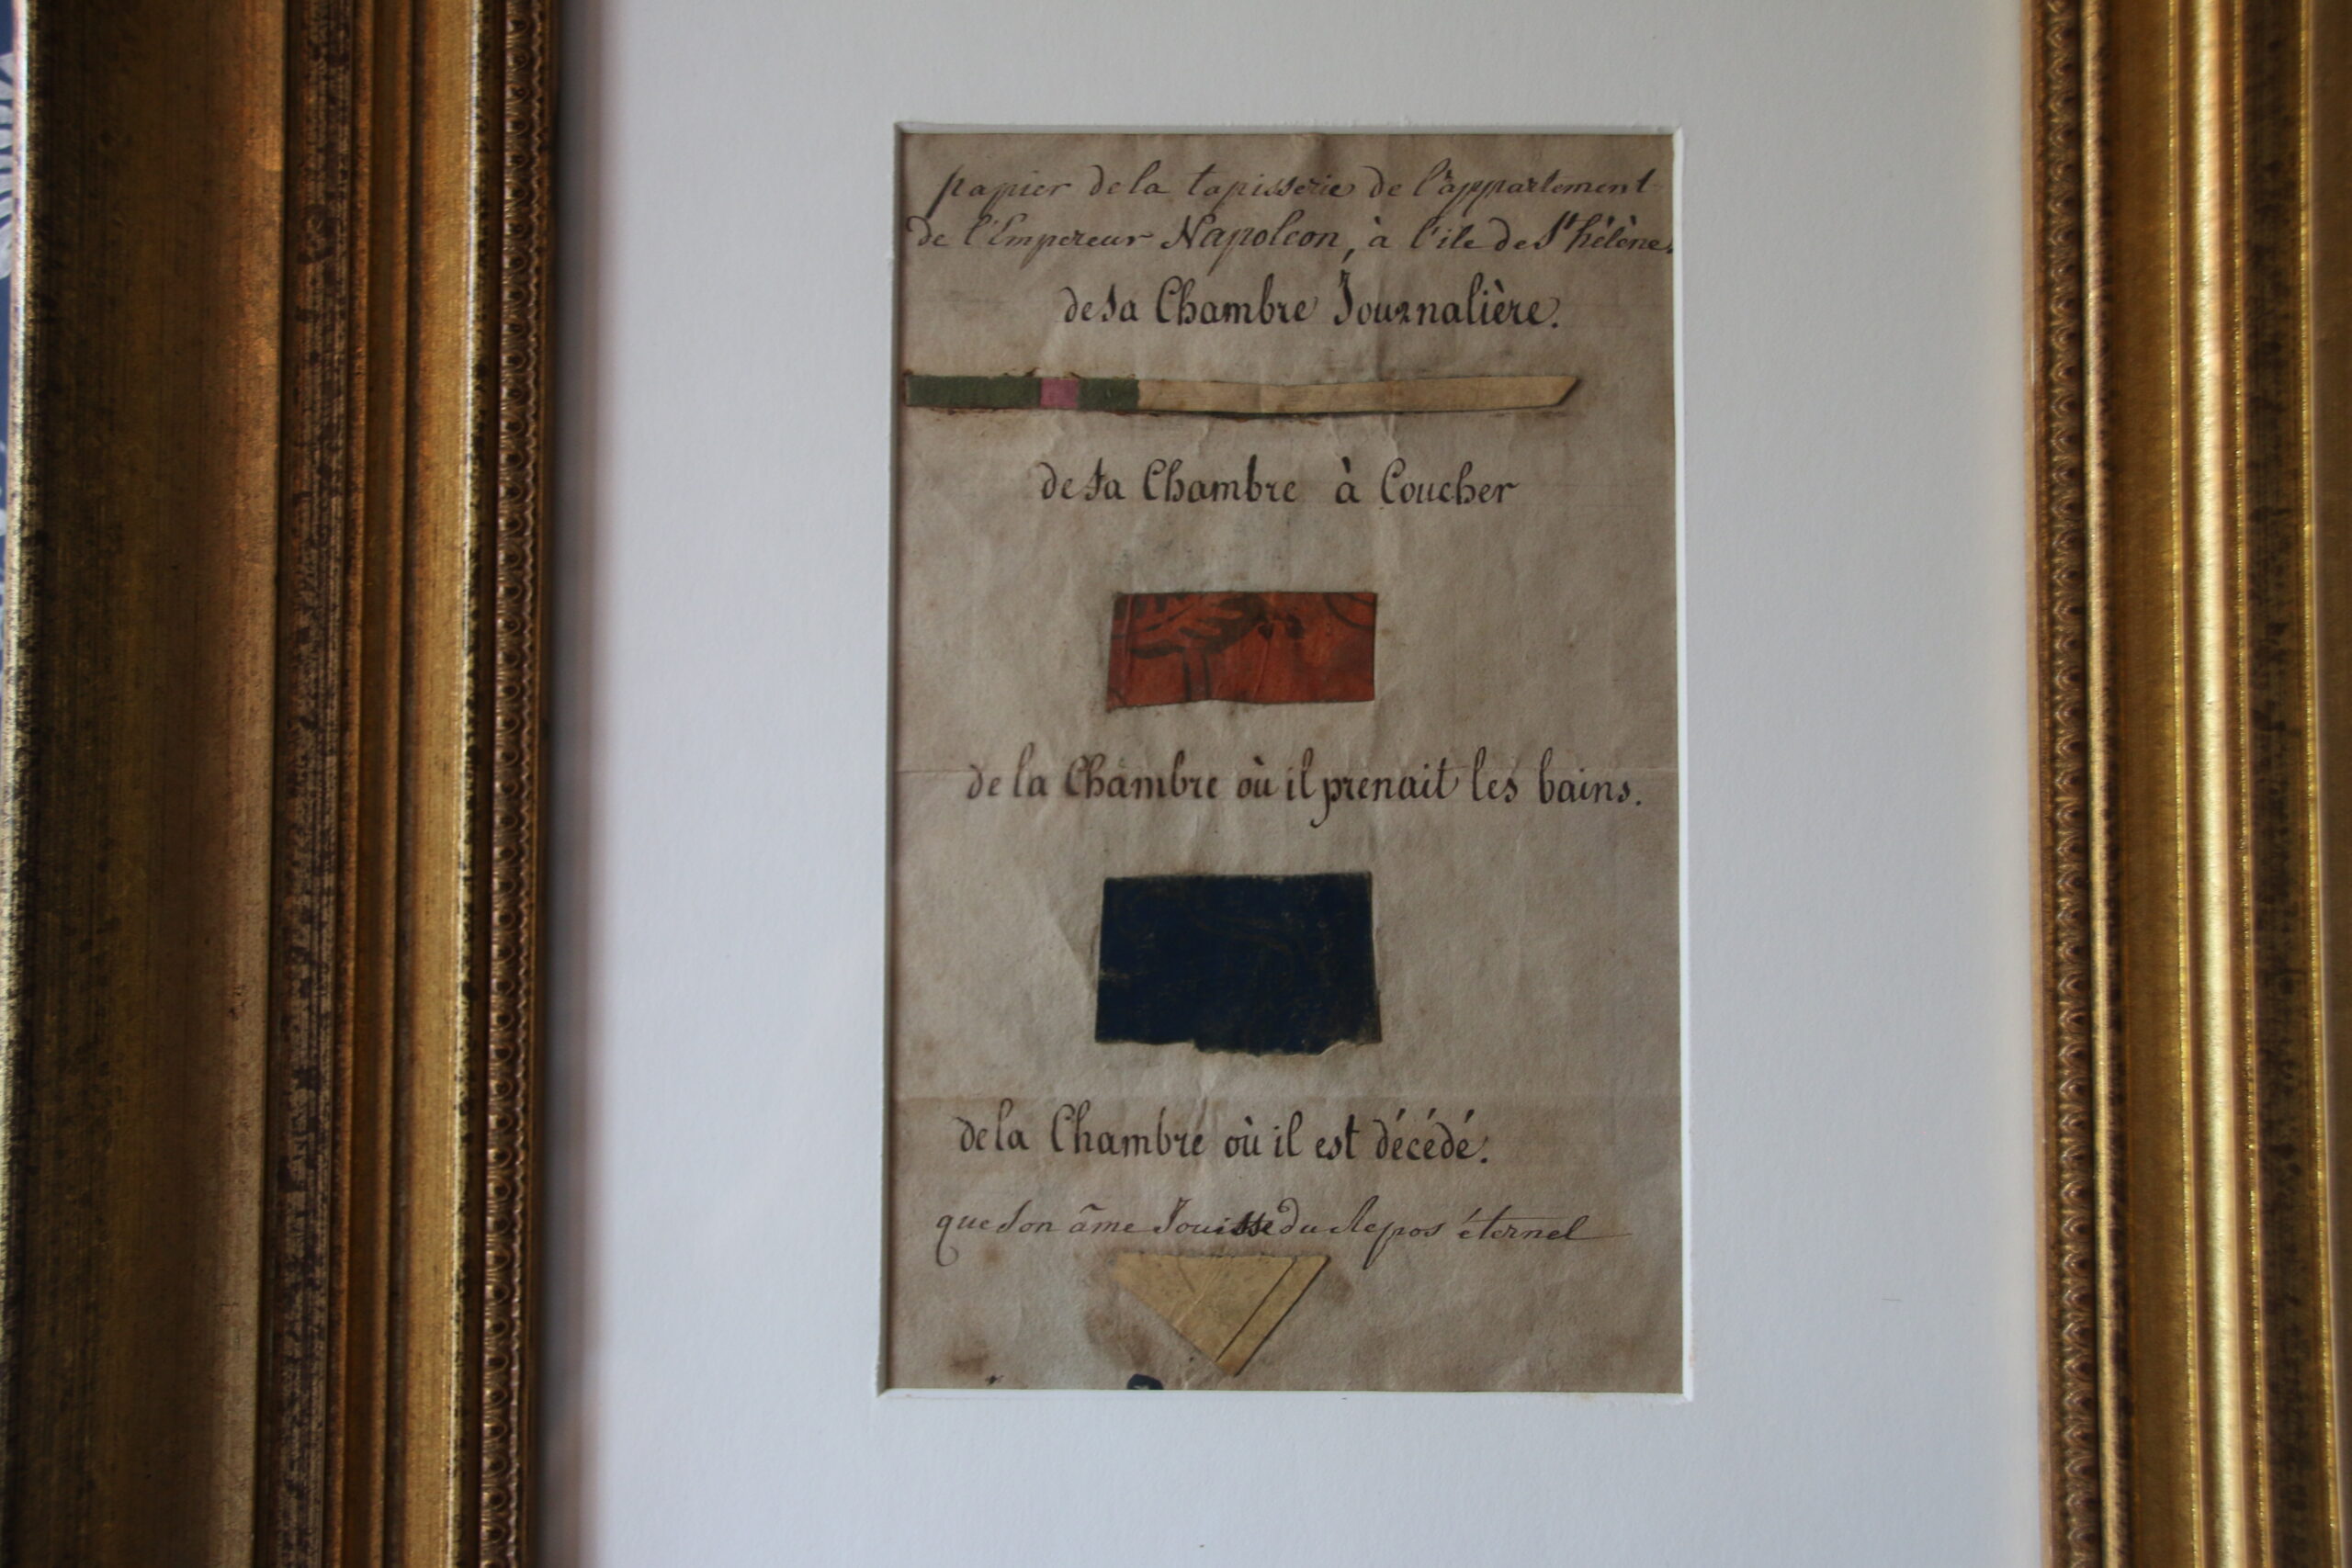 papier de la tapisserie de l'appartement
de l'Empereur Napoleon, à l'ile de St hélène.
de sa Chambre Journalière.
de sa Chambre à Coucher
de la Chambre où il prenait les bains.
de la Chambre où il est décédé.
que son âme Jouisse du Repos éternel